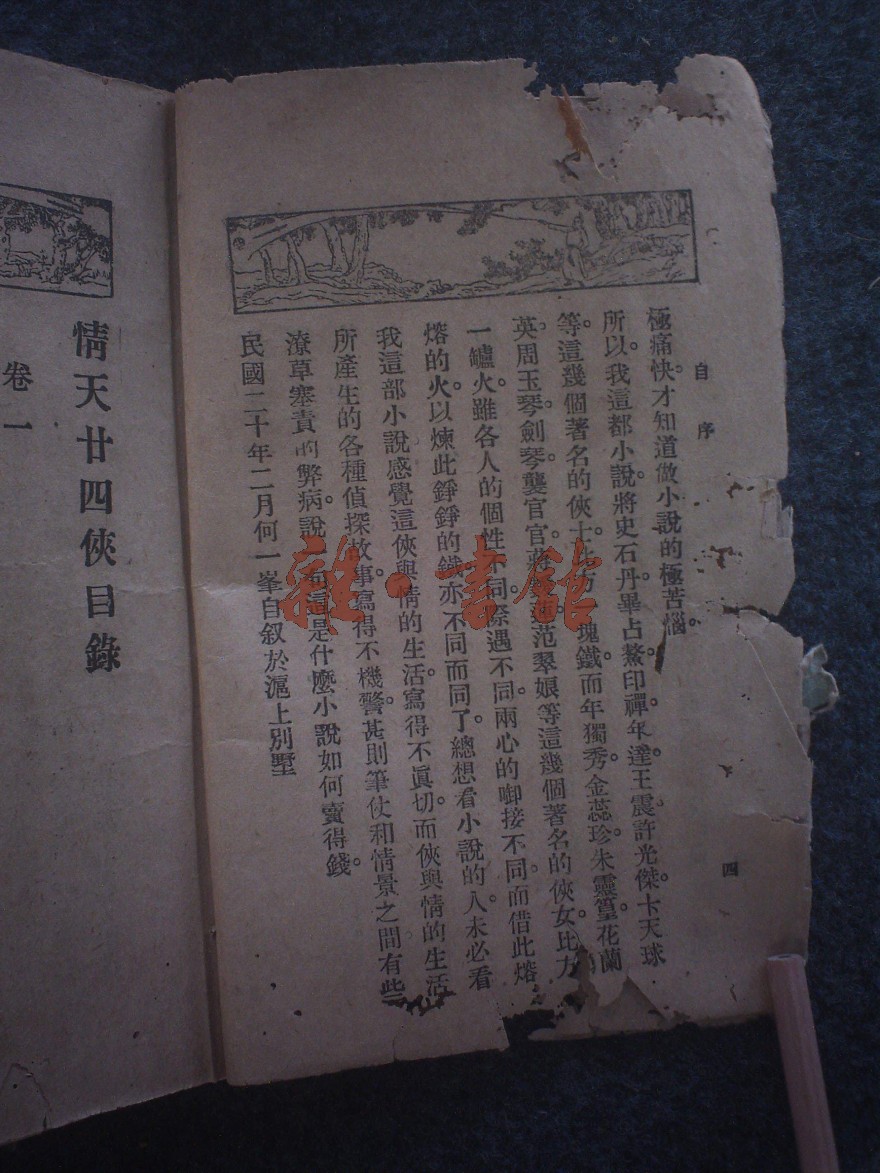 自序
四
極痛快。才知道做小說的極苦惱。
所以我這都小說。將史石丹。畢占鰲。印禪。年達。王震。許光傑。卞天球
等。這幾個著名的俠士。比方一塊鐵。而年獨秀。金蕊珍。朱靈篁。花蘭
英。周玉琴。劍琴。龔官官。蔣 范翠娘等這幾個著名的俠女。比方
一鑪火。雖各人的個性不同。際遇不同。兩心的啣接不同。而借此熔
熔的火。以煉此錚錚的鐵。亦不同而同了。總想看小說的人。未必看
我這部小說。感覺這俠與情的生活。寫得不眞切。而俠與情的生活
所產生的各種偵探故事。寫得不機警。甚則筆仗和情景之間。有些
潦草塞責的弊病。說一句這是什麼小說。如何賣得錢。
民國二十年二月何一峯自叙於滬上別墅
情天廿四俠目錄
卷一
雜·書館